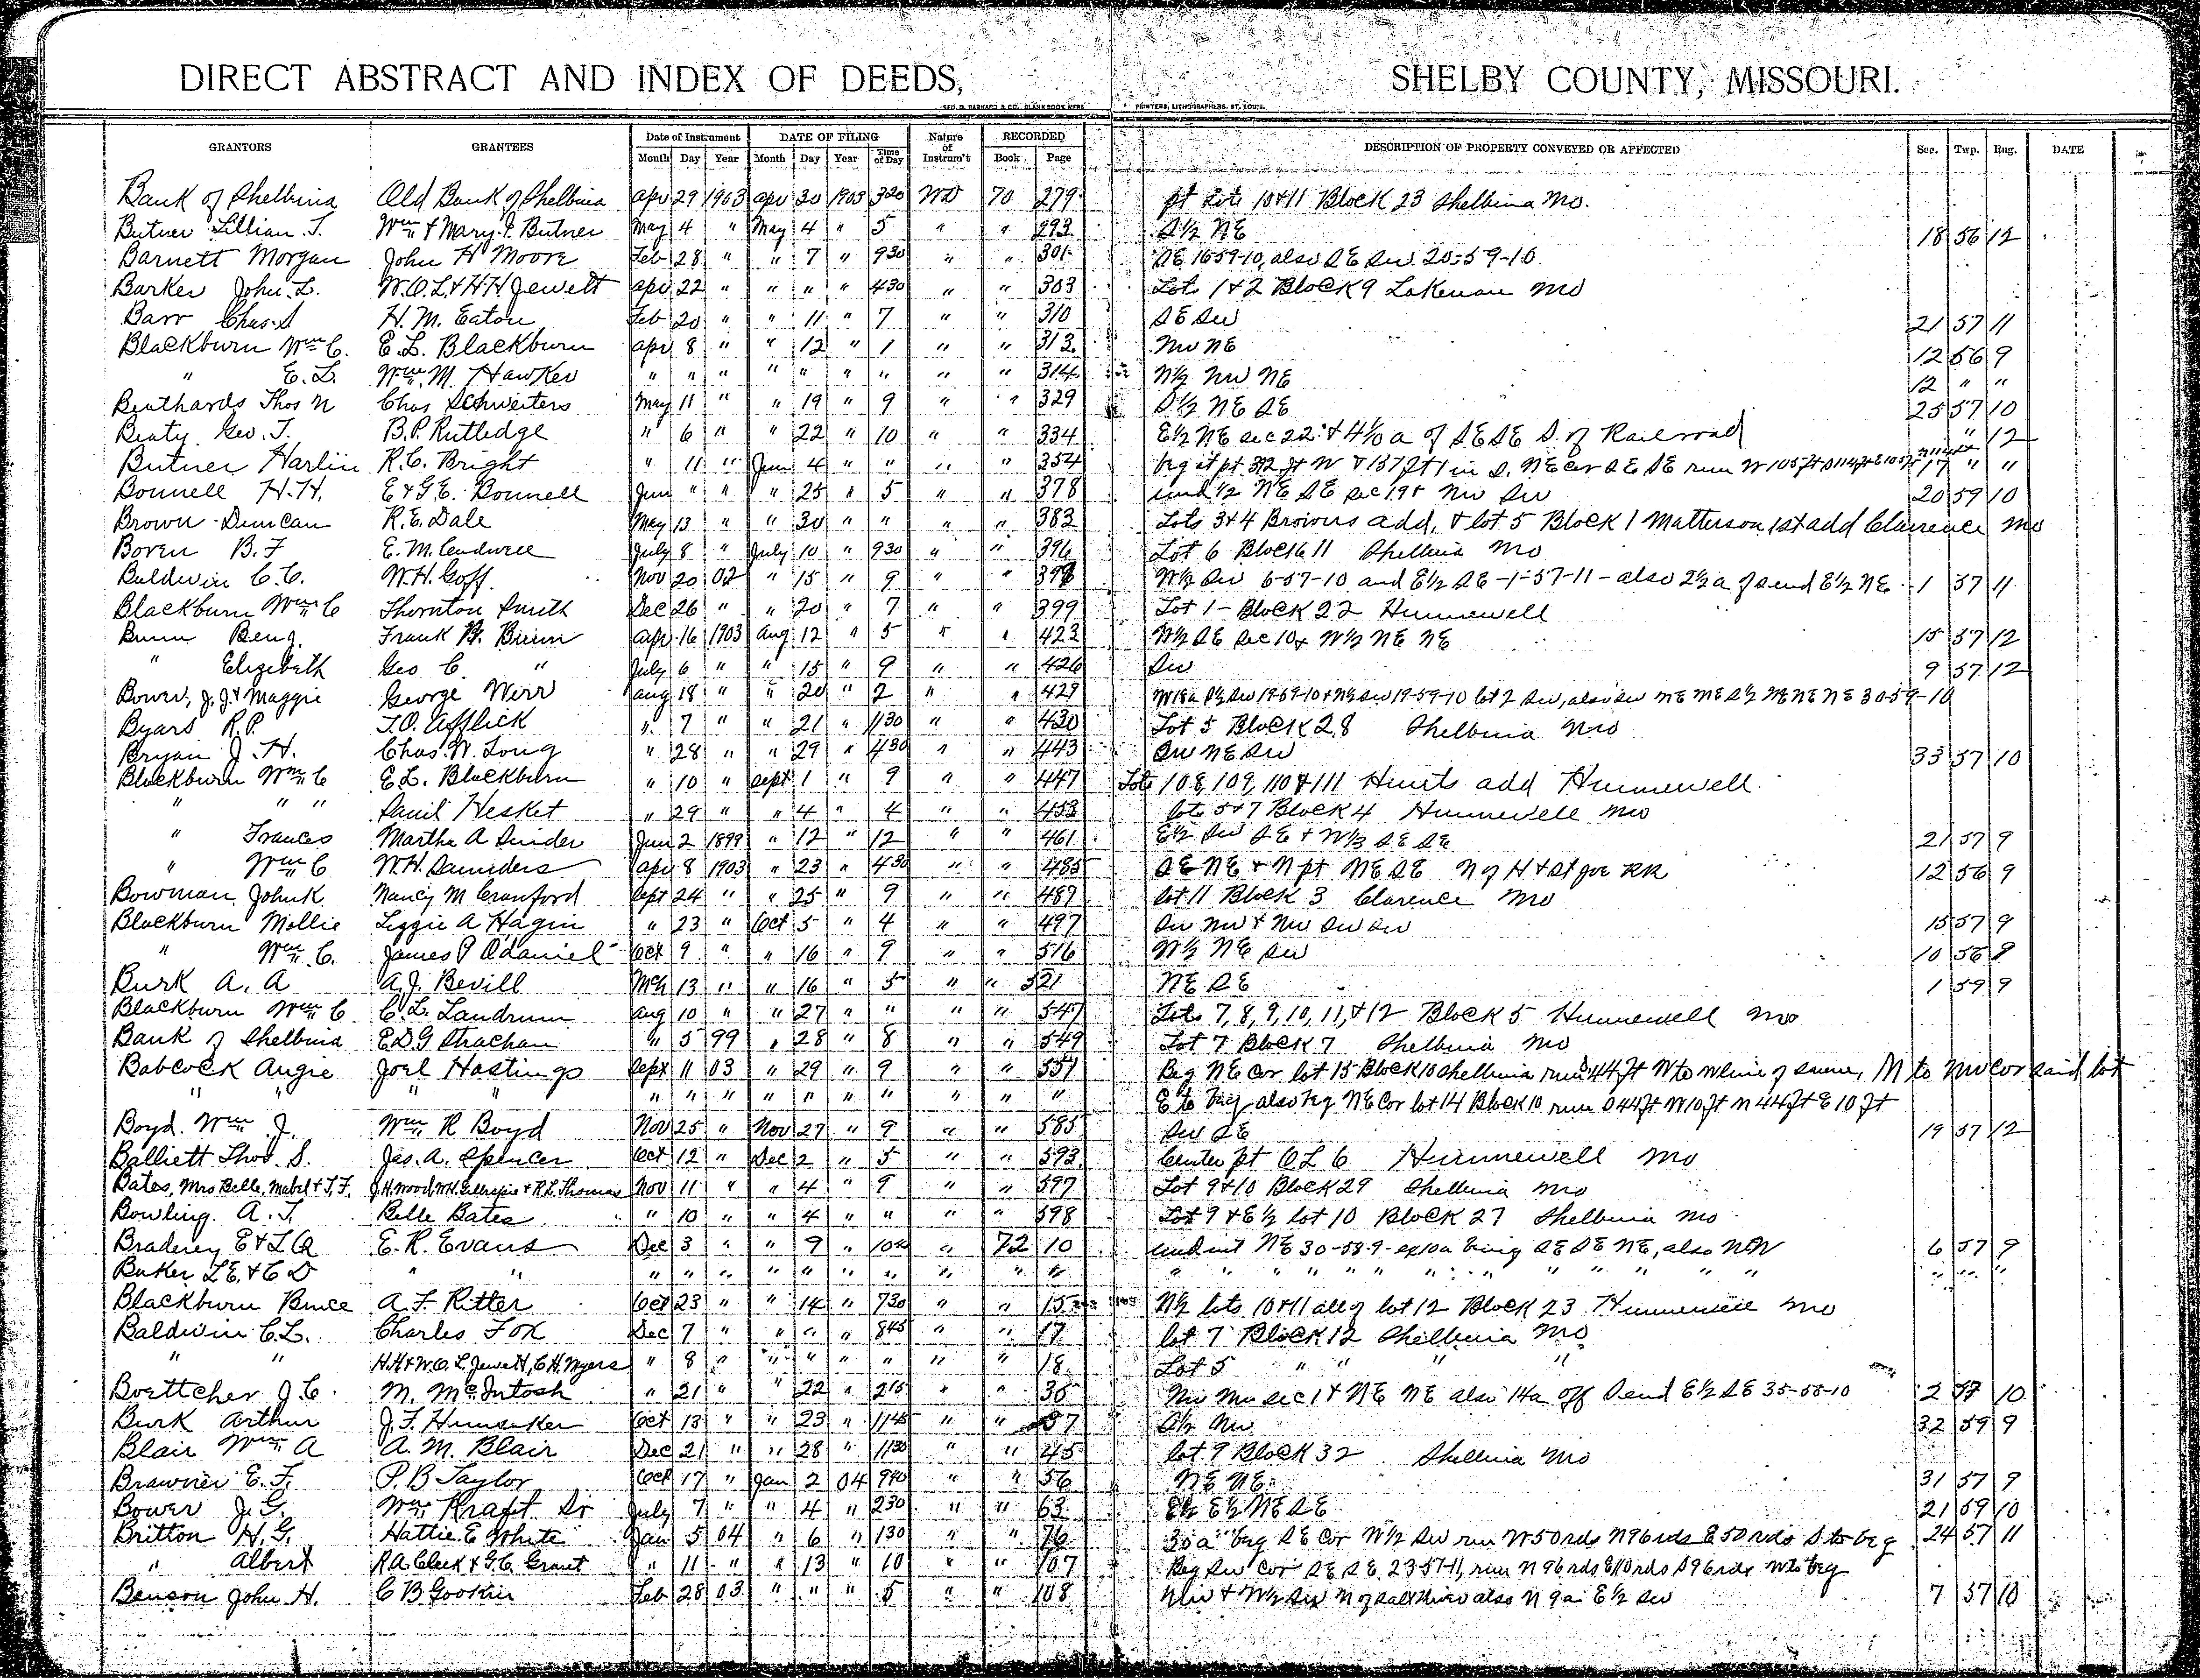 DIRECT ABSTRACT AND INDEX OF DEEDS, SHELBY COUNTY, MISSOURI.
GEO. D. BARNARD & CO. BLANK BOOK MKRS. PRINTERS, LITHOGRAPHERS, ST. LOUIS.
GRANTORS GRANTEES Date of Instrument DATE OF FILING Nature of Instrum't RECORDED DESCRIPTION OF PROPERTY CONVEYED OR AFFECTED Sec. Twp. Rng. DATE
Month Day Year Month Day Year Time of Day Book Page
Bank of Shelbina Old Bank of Shelbina Apr 29 1903 Apr 30 1903 320 WD 70 279 pt Lots 10+11 Block 23 Shelbina Mo.
Butner Lillian T. Wm + Mary J. Butner May 4 " May 4 " 5 " " 293 S½ NE 18 56 12
Barnett Morgan John H Moore Feb 28 " " 7 " 930 " " 301 SE 16-59-10, also SE SW. 20-59-10.
Barker John L. W.O.L.+H.H. Jewett Apr 22 " " " " 430 " " 303 Lots 1+2 Block 9 Lakenan Mo
Barr Chas. S H. M. Eaton Feb 20 " " 11 " 7 " " 310 SE SW 21 57 11
Blackburn Wm C. E. L. Blackburn Apr 8 " " 12 " 1 " " 313 NW NE 12 56 9
" E. L. Wm. M. Hawker " " " " " " " " " 314 N½ NW NE 12 " "
Beathards Thos N Chas Schwieters May 11 " " 19 " 9 " " 329 S½ NE SE 25 57 10
Beaty Geo. T. B.P. Rutledge " 6 " " 22 " 10 " " 334 E½ NE Sec 22 + 4 1/10 a of SE SE S. of Railroad " 12
Butner Harlin R. C. Bright " 11 " Jun 4 " " " " 354 beg at pt 312 ft W + 137 ft 1 in S. NE Cor SE SE run W 105 ft S 114 ft E 105 ft 17 " "
Bonnell H.H. E + G.E. Bonnell Jun " " " 25 " 5 " " 378 und ½ NE SE Sec 19 + NW SW 20 59 10
Brown Duncan R. E. Dale May 13 " " 30 " " " " 383 Lots 3+4 Browns add, + lot 5 Block 1 Matterson 1st add Clarence Mo
Boren B. F E. M. Cadwell July 8 " July 10 " 930 " " 396 Lot 6 Block 11 Shelbina Mo
Baldwin C. C. W. H. Goff Nov 20 02 " 15 " 9 " " 398 W½ SW 6-57-10 and E½ SE -1-57-11- also 2½ a of S end E½ NE 1 57 11
Blackburn Wm C Thornton Smith Dec 26 " " 20 " 7 " " 399 Lot 1 - Block 22 Hunnewell
Bunn Benj. Frank B. Bunn Apr 16 1903 Aug 12 " 5 " " 423 W½ SE Sec 10 + W½ NE NE 15 57 12
" Elizabeth Geo C. " July 6 " " 15 " 9 " " 426 SW 9 57 12
Bower, J. J. + Maggie George Wirr Aug 18 " " 20 " 2 " " 429 W 18a S½ SW 19-59-10 + N½ SW 19-59-10 lot 2 SW, also SW NE NE S½ NE NE NE 30-59-10
Byars R.P. T. O. Afflick " 7 " " 21 " 1130 " " 430 Lot 5 Block 28 Shelbina Mo
Bryan J. H. Chas. W. Long " 28 " " 29 " 430 " " 443 SW NE SW 33 57 10
Blackburn Wm C E. L. Blackburn " 10 " Sept 1 " 9 " " 447 Lots 108, 109, 110 + 111 Hunts add Hunnewell.
" " " David Hesket " 29 " " 4 " 4 " " 453 lots 5+7 Block 4 Hunnewell Mo
" Frances Martha A Snider Jun 2 1899 " 12 " 12 " " 461 E½ SW SE + W⅓ SE SE 21 57 9
" Wm C W. H. Saunders Apr 8 1903 " 23 " 430 " " 485 SE NE + N pt NE SE N of H + St Joe RR 12 56 9
Bowman John K. Nancy M Crawford Sept 24 " " 25 " 9 " " 487 lot 11 Block 3 Clarence Mo
Blackburn Mollie Lizzie A Hagin " 23 " Oct 5 " 4 " " 497 SW NW + NW SW SW 15 57 9
" Wm C. James P Odaniel Oct 9 " " 16 " 9 " " 516 W½ NE SW 10 56 9
Burk A. A A. J. Bevill Mch 13 " " 16 " 5 " " 521 NE SE 1 59 9
Blackburn Wm C C. L. Landrum Aug 10 " " 27 " " " " 547 Lots 7, 8, 9, 10, 11, + 12 Block 5 Hunnewell Mo
Bank of Shelbina E D G Strachan " 5 99 " 28 " 8 " " 549 Lot 7 Block 7 Shelbina Mo
Babcock Angie Joel Hastings Sept 11 03 " 29 " 9 " " 551 Beg NE Cor lot 15 Block 10 Shelbina run S 44 ft W to W line of same, N to NW Cor said lot
" " " " " " " " " " " " " " E to beg also beg NE Cor lot 14 Block 10 run S 44 ft W 10 ft N 44 ft E 10 ft
Boyd Wm J. Wm R Boyd Nov 25 " Nov 27 " 9 " " 585 SW SE 19 57 12
Balliett Thos. S. Jas. A. Spencer Oct 12 " Dec 2 " 5 " " 593 Center pt O L 6 Hunnewell Mo
Bates, Mrs Belle, Mabel + T. F. J. H. Wood, W.H. Gillespie + R. L. Thomas Nov 11 " " 4 " 9 " " 597 Lot 9+10 Block 29 Shelbina Mo
Bowling A. T. Belle Bates " 10 " " 4 " " " " 598 Lot 9 + E½ lot 10 Block 27 Shelbina Mo
Braderey E + L Q E. R. Evans Dec 3 " " 9 " 10 " 72 10 und int NE 30-58-9- ex 10a being SE SE NE, also 6 57 9
Baker L E. + C D " " " " " " " " " " " " " " " " " " " " "
Blackburn Bruce A. F. Ritter Oct 23 " " 14 " 730 " " 15 N½ lots 10+11 all of lot 12 Block 23 Hunnewell Mo
Baldwin C. L. Charles Fox Dec 7 " " " " 845 " " 17 lot 7 Block 12 Shelbina Mo
" " H.H + W.O. L. Jewett, C H. Myers " 8 " " " " " " " 18 Lot 5 " " " "
Boettcher J. C. M. McIntosh " 21 " " 22 " 215 " " 35 NW NW Sec 1 + NE NE also 14a off S end E½ SE 35-58-10 2 57 10
Burk Arthur J. F. Hunsaker Oct 13 " " 23 " 1145 " " 37 S½ NW 32 59 9
Blair Wm A A. M. Blair Dec 21 " " 28 " 1130 " " 45 lot 9 Block 32 Shelbina Mo
Brawner E. F. P. B Taylor Oct 17 " Jan 2 04 940 " " 56 NE NE 31 57 9
Bower J. G. Wm Kraft Sr July 7 " " 4 " 230 " " 63 E½ E½ NE SE 21 59 10
Britton H. G. Hattie E White Jan 5 04 " 6 " 130 " " 76 30 a beg SE Cor W½ SW run W 50 rds N 96 rds E 50 rds S to beg 24 57 11
" Albert R A. Cleek + G. C. Grant " 11 " " 13 " 10 " " 107 Beg SW Cor SE SE, 23-57-11, run N 96 rds E 110 rds S 96 rds W to beg
Benson John H. C B Gookin Feb 28 03 " " " 5 " " 108 NW + W½ SW N of Salt River also N 9a E½ SW 7 57 10